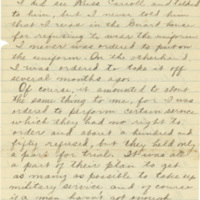 I did see Russ Carroll and talked
to him, but I never told him
that I was in the Guard House
for refusing to wear the uniform
I never was ordered to put on
the uniform. On the other hand,
I was ordered to take it off
several months ago.
Of course, it amounted to about
the same thing to me, for I was
ordered to perform certain service
which they had no right to
order and about a hundred and
fifty refused, but they held only
a part for trial. It was all
a part of their plan to get
as many as possible to take up
military service and of course
if a man hasn't got enough